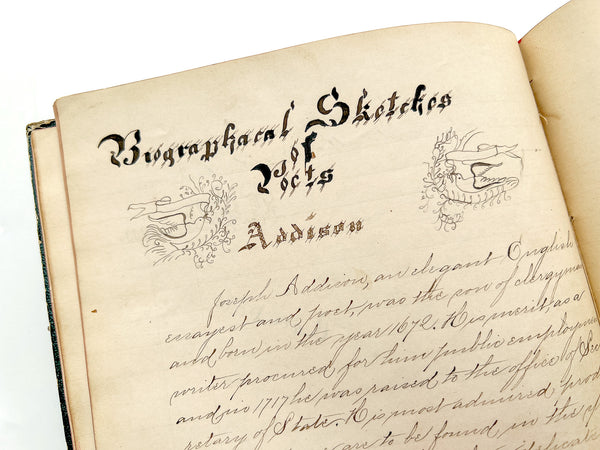 Biographacal Sketches
of
Poets
Addison
Joseph Addison, an elegant English
essayest and poet, was the son of clergyman
and born in the year 1672. His merit as a
writer procured for him public employmen
and in 1717 he was raised to the office of Sec
retary of State. His most admired prod
are to be found in the
delicate